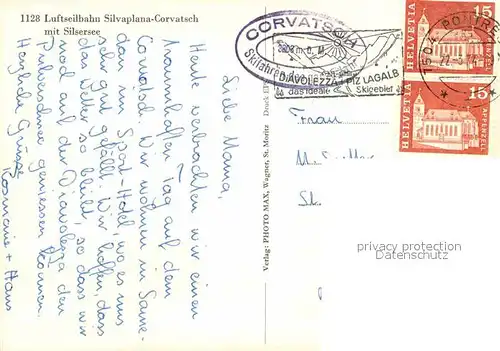 1128 Luftseilbahn Silvaplana-Corvatsch
mit Silsersee
Liebe Mamma,
Heute verbrachten wir einen
traumhaften Tag auf dem
Corvatsch. Wir wohnen in Same-
dan im Sport-Hotel, wo es uns
sehr gut gefällt. Wir hoffen, dass
das Wetter so bleibt, so dass wir
noch auf der Diavolezza den
Pulverschnee geniessen können.
Herzliche Grüsse
Rosmarie + Hans
Verlag: PHOTO MAX, Wagner, St. Moritz
CORVATSCH
Skifahren
DIAVOLEZZA / PIZ LAGALB
das ideale Skigebiet
HELVETIA 15 APPENZELL
HELVETIA 15 APPENZELL
7504 PONTRE
Frau
privacy protection
Datenschutz